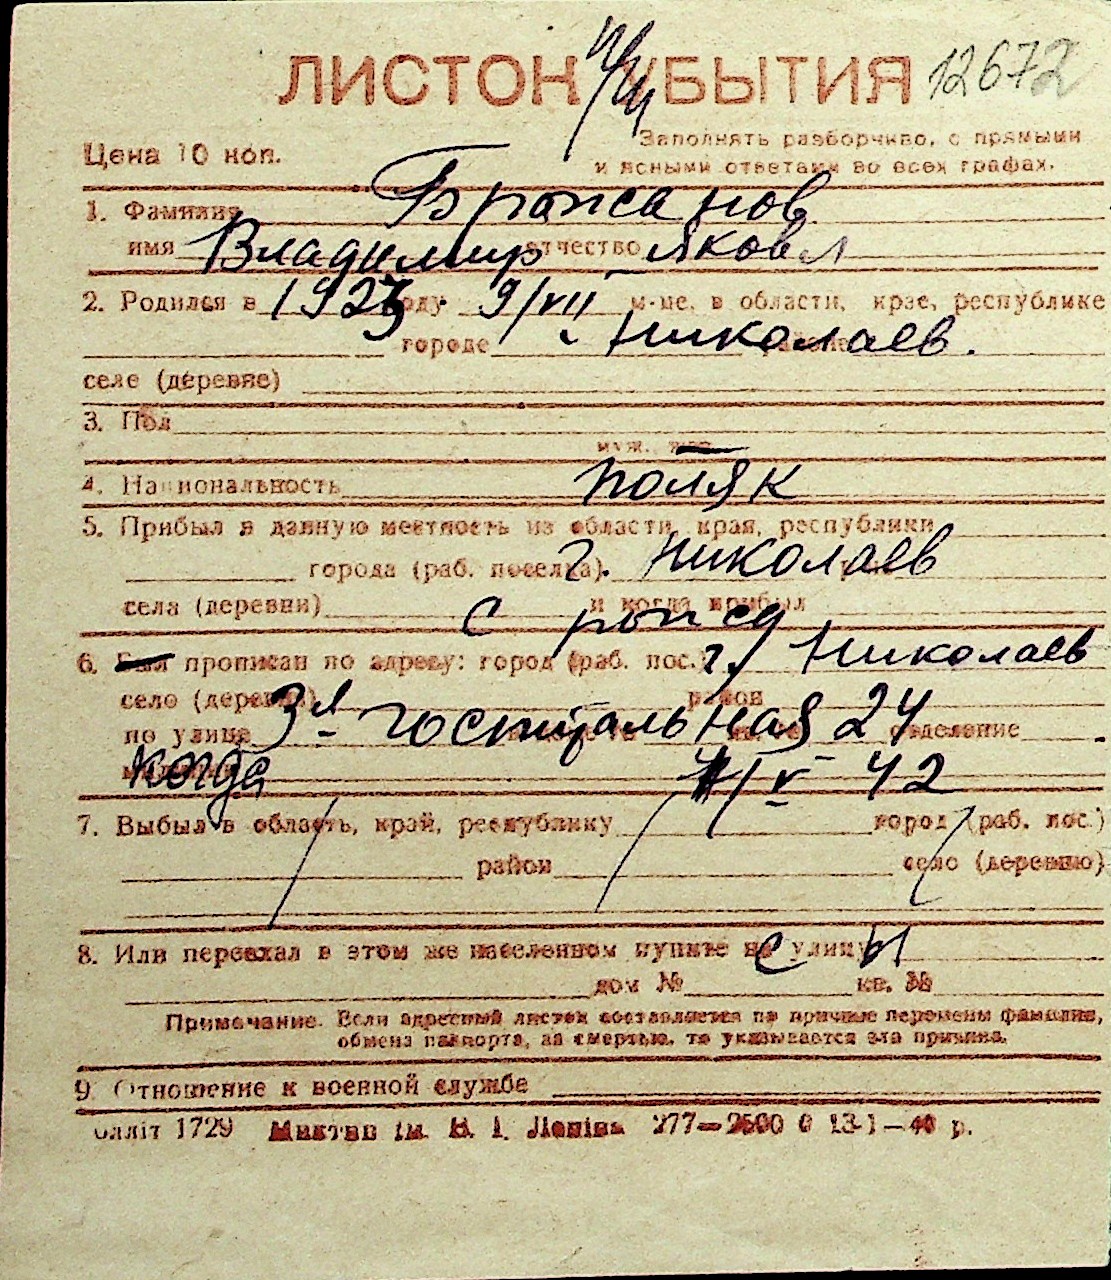 ЛИСТОК УБЫТИЯ 12672
Цена 10 коп.
Заполнять разборчиво, с прямыми
и ясными ответами во всех графах.
1. Фамилия Бронсанов
имя Владимир отчество Яковл
2. Родился в 1923 году 9/VII м-це, в области, крае, республике
городе Николаев.
селе (деревне)
3. Пол
муж. жен.
4. Национальность поляк
5. Прибыл в данную местность из области, края, республики
города (раб. поселка) г. Николаев
села (деревни) и когда прибыл
с рожд
6. Был прописан по адресу: город (раб. пос.) г. Николаев
село (деревня) район
по улице 3я Госпитальная 24 отделение
когда 4/V 42
7. Выбыл в область, край, республику город (раб. пос.)
район село (деревню)
8. Или переехал в этом же населенном пункте на улицу
дом № кв. №
Примечание. Если адресный листок составляется по причине перемены фамилии,
обмена паспорта, за смертью, то указывается эта причина.
9. Отношение к военной службе
1729 277—2500 13-1—40 р.